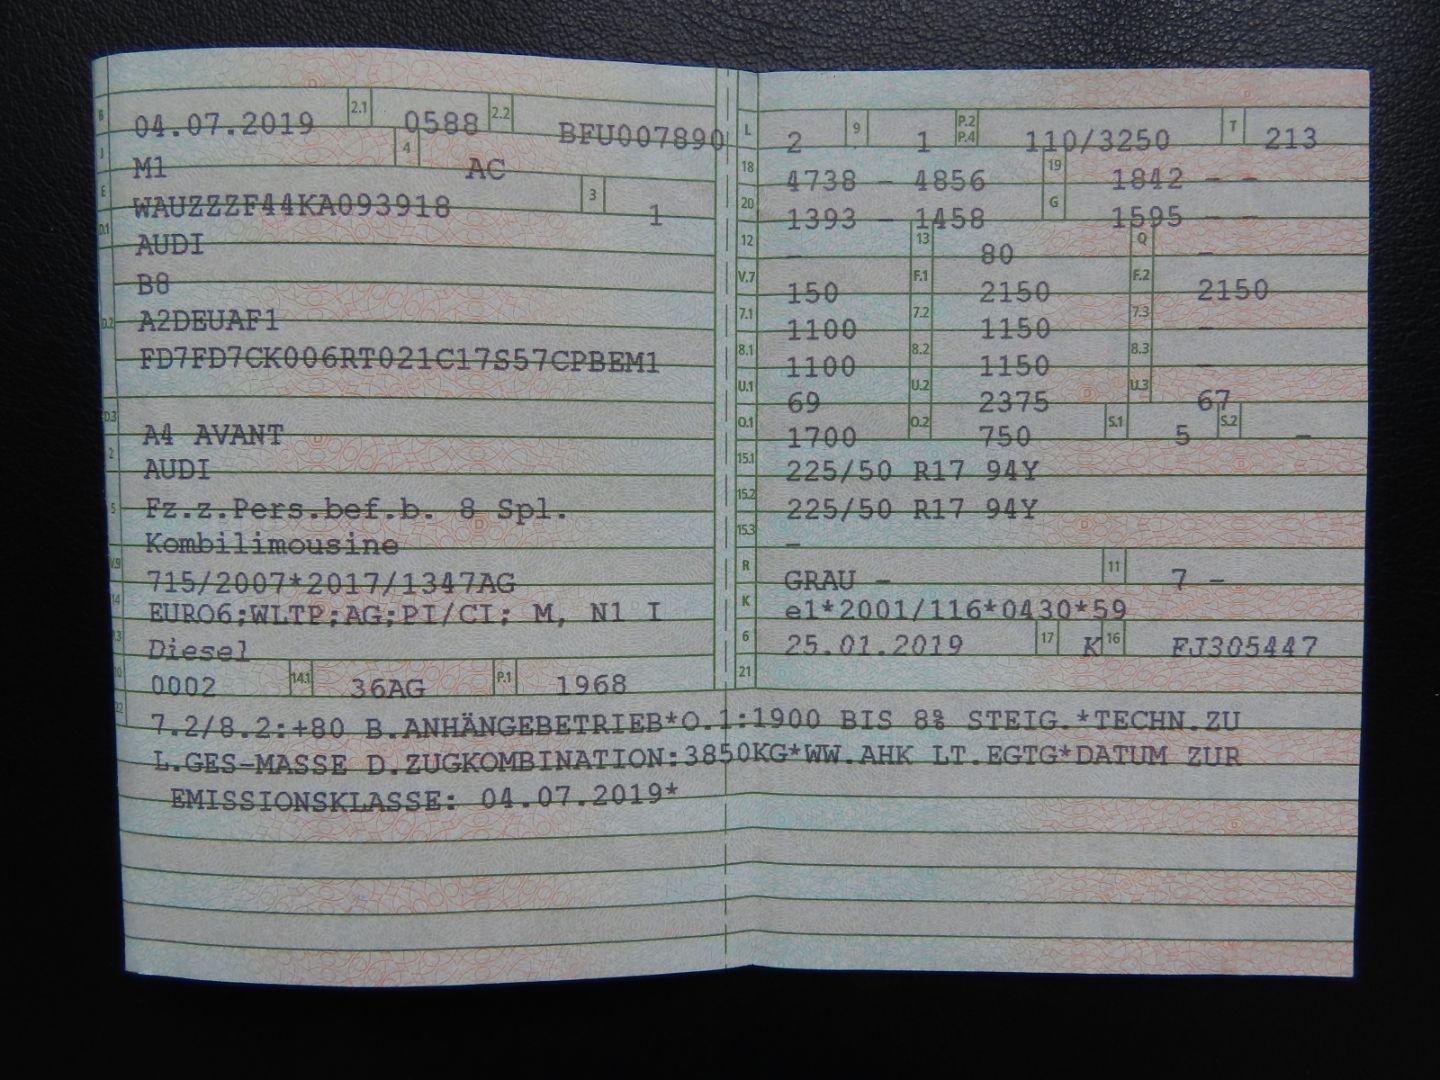 B 04.07.2019 2.1 0588 2.2 BFU007890
J M1 4 AC
E WAUZZZF44KA093918 3 1
D.1 AUDI
B8
D.2 A2DEUAF1
FD7FD7CK006RT021C17S57CPBEM1
D.3 A4 AVANT
2 AUDI
5 Fz.z.Pers.bef.b. 8 Spl.
Kombilimousine
V.9 715/2007*2017/1347AG
14 EURO6;WLTP;AG;PI/CI; M, N1 I
P.3 Diesel
10 0002 14.1 36AG P.1 1968
L 2 9 1 P.2 P.4 110/3250 T 213
18 4738 - 4856 19 1842 - -
20 1393 - 1458 G 1595 - -
12 - 13 80 Q -
V.7 150 F.1 2150 F.2 2150
7.1 1100 7.2 1150 7.3 -
8.1 1100 8.2 1150 8.3 -
U.1 69 U.2 2375 U.3 67
O.1 1700 O.2 750 S.1 5 S.2 -
15.1 225/50 R17 94Y
15.2 225/50 R17 94Y
15.3 -
R GRAU - 11 7 -
K e1*2001/116*0430*59
6 25.01.2019 17 K 16 FJ305447
21
22 7.2/8.2:+80 B.ANHÄNGEBETRIEB*O.1:1900 BIS 8% STEIG.*TECHN.ZU
L.GES-MASSE D.ZUGKOMBINATION:3850KG*WW.AHK LT.EGTG*DATUM ZUR
EMISSIONSKLASSE: 04.07.2019*